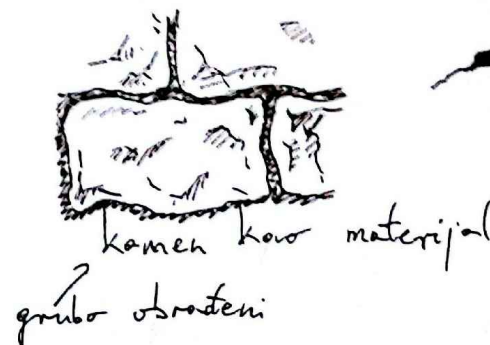 kamen kao materijal
grubo obrađeni